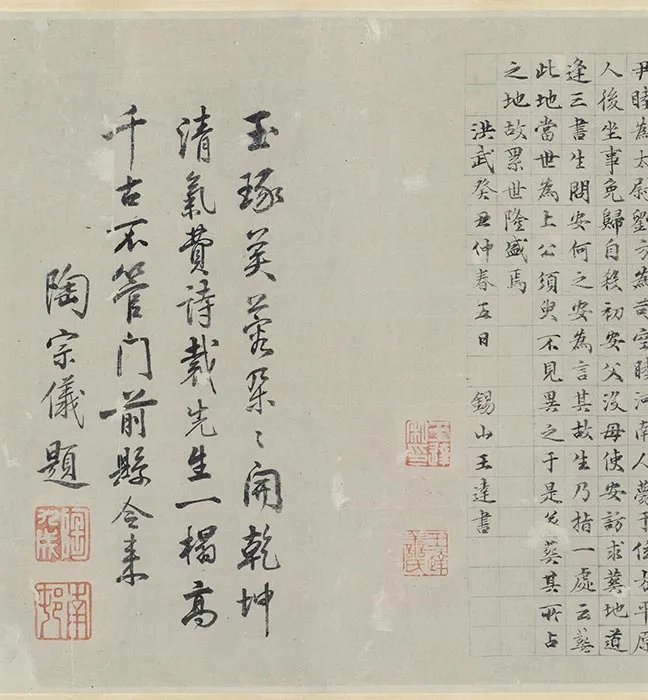 尹睦為太尉劉方為司空睦河南人薨于位方平原
人後坐事免歸自殺初安父沒母使安訪求葬地道
逢三書生問安何之安為言其故生乃指一處云葬
此地當世為上公須臾不見異之于是遂葬其所占
之地故累世隆盛焉
洪武癸丑仲春五日 錫山王達書
玉琢芙蓉朵〻開乾坤
清氣費詩裁先生一榻高
千古不管門前縣令来
陶宗儀題
陶九成
南邨